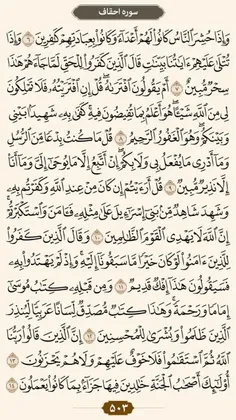 سوره احقاف
وَإِذَا حُشِرَ ٱلنَّاسُ كَانُوا۟ لَهُمْ أَعْدَآءً وَكَانُوا۟ بِعِبَادَتِهِمْ كَٰفِرِينَ ۝٦ وَإِذَا
تُتْلَىٰ عَلَيْهِمْ ءَايَٰتُنَا بَيِّنَٰتٍ قَالَ ٱلَّذِينَ كَفَرُوا۟ لِلْحَقِّ لَمَّا جَآءَهُمْ هَٰذَا
سِحْرٌ مُّبِينٌ ۝٧ أَمْ يَقُولُونَ ٱفْتَرَىٰهُ قُلْ إِنِ ٱفْتَرَيْتُهُۥ فَلَا تَمْلِكُونَ
لِى مِنَ ٱللَّهِ شَيْـًٔا هُوَ أَعْلَمُ بِمَا تُفِيضُونَ فِيهِ كَفَىٰ بِهِۦ شَهِيدًۢا بَيْنِى
وَبَيْنَكُمْ وَهُوَ ٱلْغَفُورُ ٱلرَّحِيمُ ۝٨ قُلْ مَا كُنتُ بِدْعًا مِّنَ ٱلرُّسُلِ
وَمَآ أَدْرِى مَا يُفْعَلُ بِى وَلَا بِكُمْ إِنْ أَتَّبِعُ إِلَّا مَا يُوحَىٰٓ إِلَىَّ وَمَآ أَنَا۠
إِلَّا نَذِيرٌ مُّبِينٌ ۝٩ قُلْ أَرَءَيْتُمْ إِن كَانَ مِنْ عِندِ ٱللَّهِ وَكَفَرْتُم بِهِۦ
وَشَهِدَ شَاهِدٌ مِّنۢ بَنِىٓ إِسْرَٰٓءِيلَ عَلَىٰ مِثْلِهِۦ فَـَٔامَنَ وَٱسْتَكْبَرْتُمْ
إِنَّ ٱللَّهَ لَا يَهْدِى ٱلْقَوْمَ ٱلظَّٰلِمِينَ ۝١٠ وَقَالَ ٱلَّذِينَ كَفَرُوا۟
لِلَّذِينَ ءَامَنُوا۟ لَوْ كَانَ خَيْرًا مَّا سَبَقُونَآ إِلَيْهِ وَإِذْ لَمْ يَهْتَدُوا۟ بِهِۦ
فَسَيَقُولُونَ هَٰذَآ إِفْكٌ قَدِيمٌ ۝١١ وَمِن قَبْلِهِۦ كِتَٰبُ مُوسَىٰٓ
إِمَامًا وَرَحْمَةً وَهَٰذَا كِتَٰبٌ مُّصَدِّقٌ لِّسَانًا عَرَبِيًّا لِّيُنذِرَ
ٱلَّذِينَ ظَلَمُوا۟ وَبُشْرَىٰ لِلْمُحْسِنِينَ ۝١٢ إِنَّ ٱلَّذِينَ قَالُوا۟ رَبُّنَا
ٱللَّهُ ثُمَّ ٱسْتَقَٰمُوا۟ فَلَا خَوْفٌ عَلَيْهِمْ وَلَا هُمْ يَحْزَنُونَ ۝١٣
أُو۟لَٰٓئِكَ أَصْحَٰبُ ٱلْجَنَّةِ خَٰلِدِينَ فِيهَا جَزَآءًۢ بِمَا كَانُوا۟ يَعْمَلُونَ ۝١٤
۵۰۳